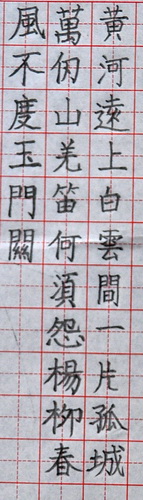 黃河遠上白雲間一片孤城
萬仞山羌笛何須怨楊柳春
風不度玉門關